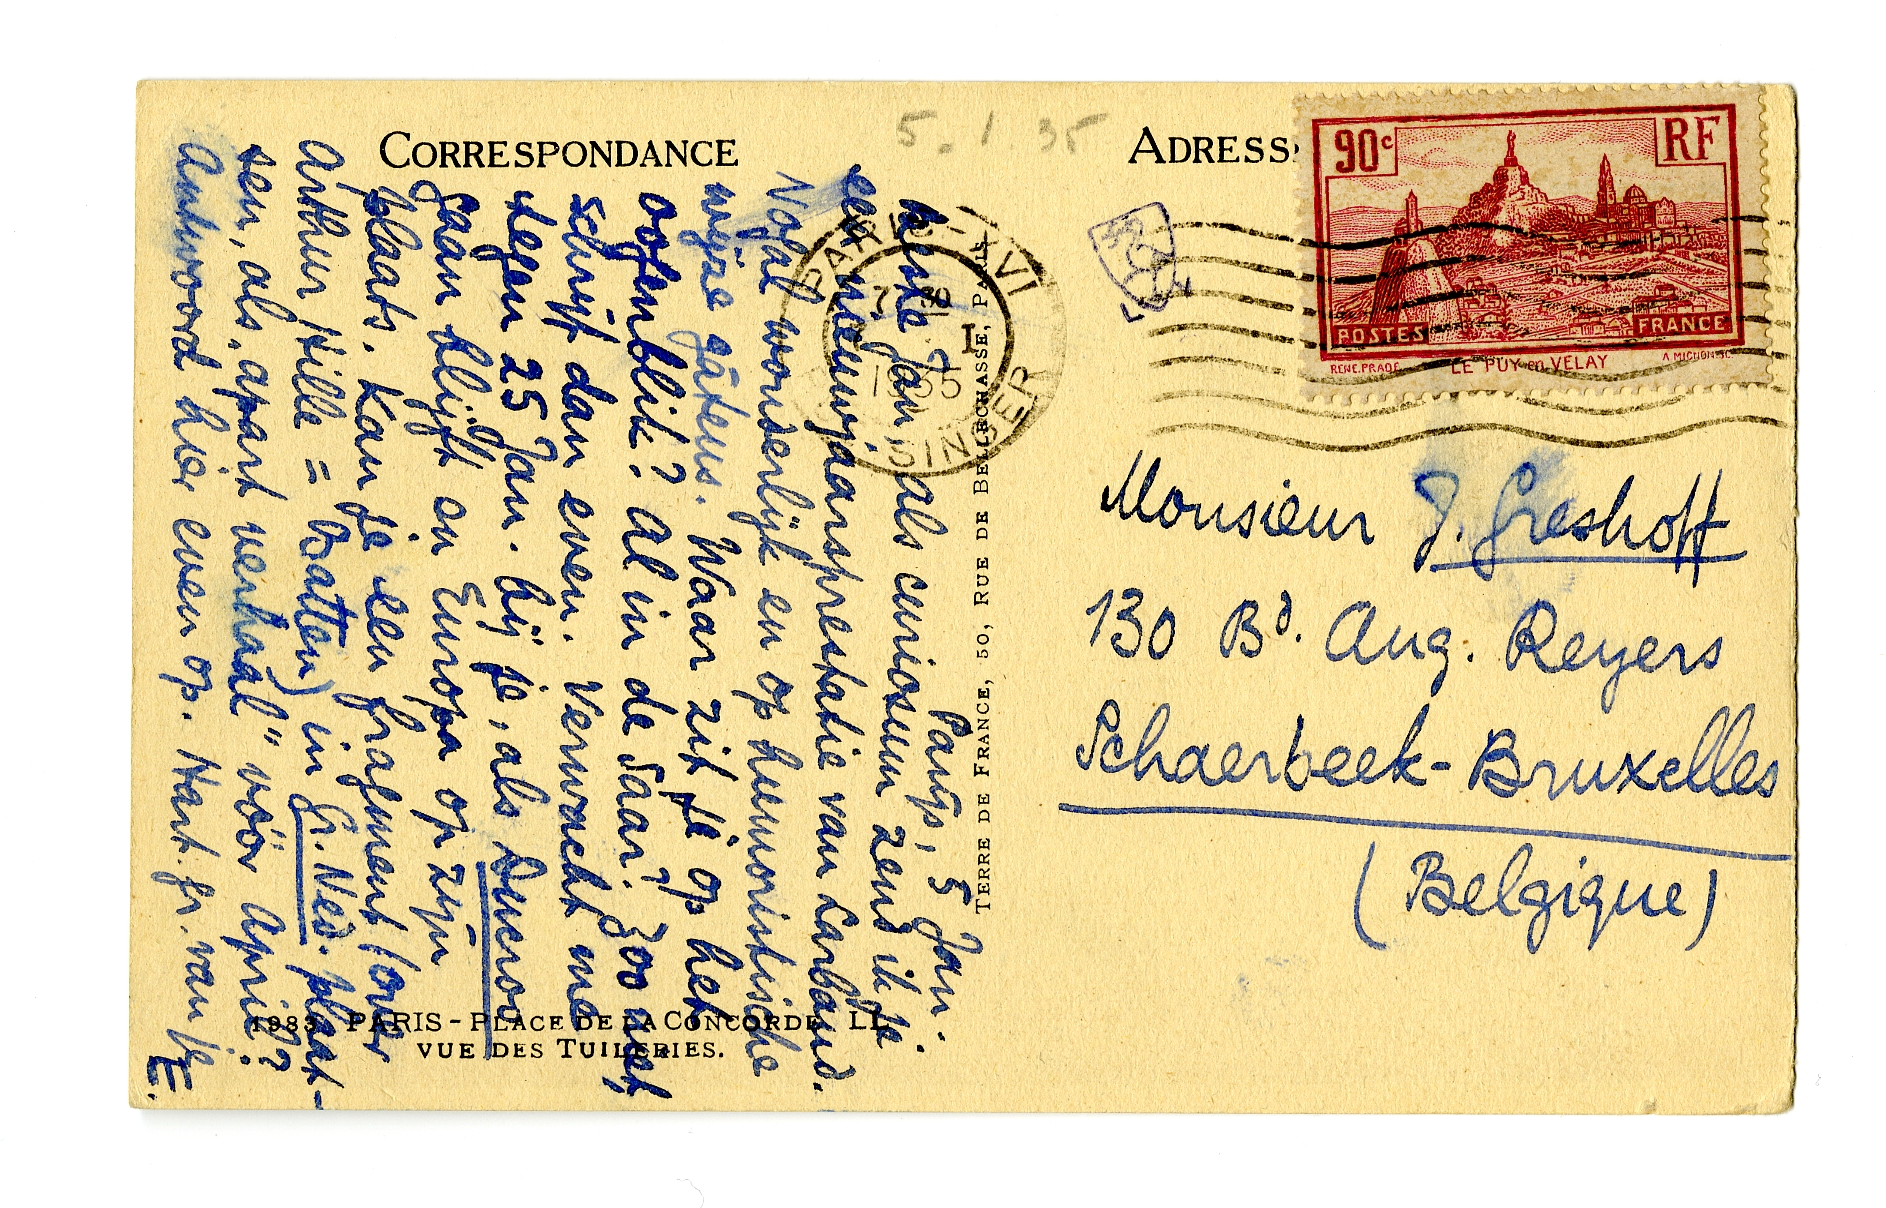 5.1.35
CORRESPONDANCE
Parijs, 5 Jan.
Beste Jan, als curiosum zend ik je
een nieuwjaarsprestatie van Larbaud.
Nogal wonderlijk en op humoristische
wijze gâteus. Waar zit je op het
oogenblik? Al in de Saar? Zoo niet,
schrijf dan even. Verwacht me
tegen 25 Jan. bij je, als Ducroo
gaan blijft en Europa op zijn
plaats. Kan je een fragment (over
Arthur Hille = Batten) in Gr. Ned. plaat-
sen, als „apart verhaal" vóór April?
Antwoord hier even op. Hart. gr. van je
E.
1983. PARIS - PLACE DE LA CONCORDE LL.
VUE DES TUILERIES.
TERRE DE FRANCE, 50, RUE DE BELLECHASSE, PARIS
PARIS-XVI
7 30
5 I
1935
SINGER
ADRESS
90c RF
POSTES FRANCE
RENE.PRADE LE PUY-en-VELAY A MIGNON SC
Monsieur J. Greshoff
130 Bd. Aug. Reyers
Schaerbeek-Bruxelles
(Belgique)